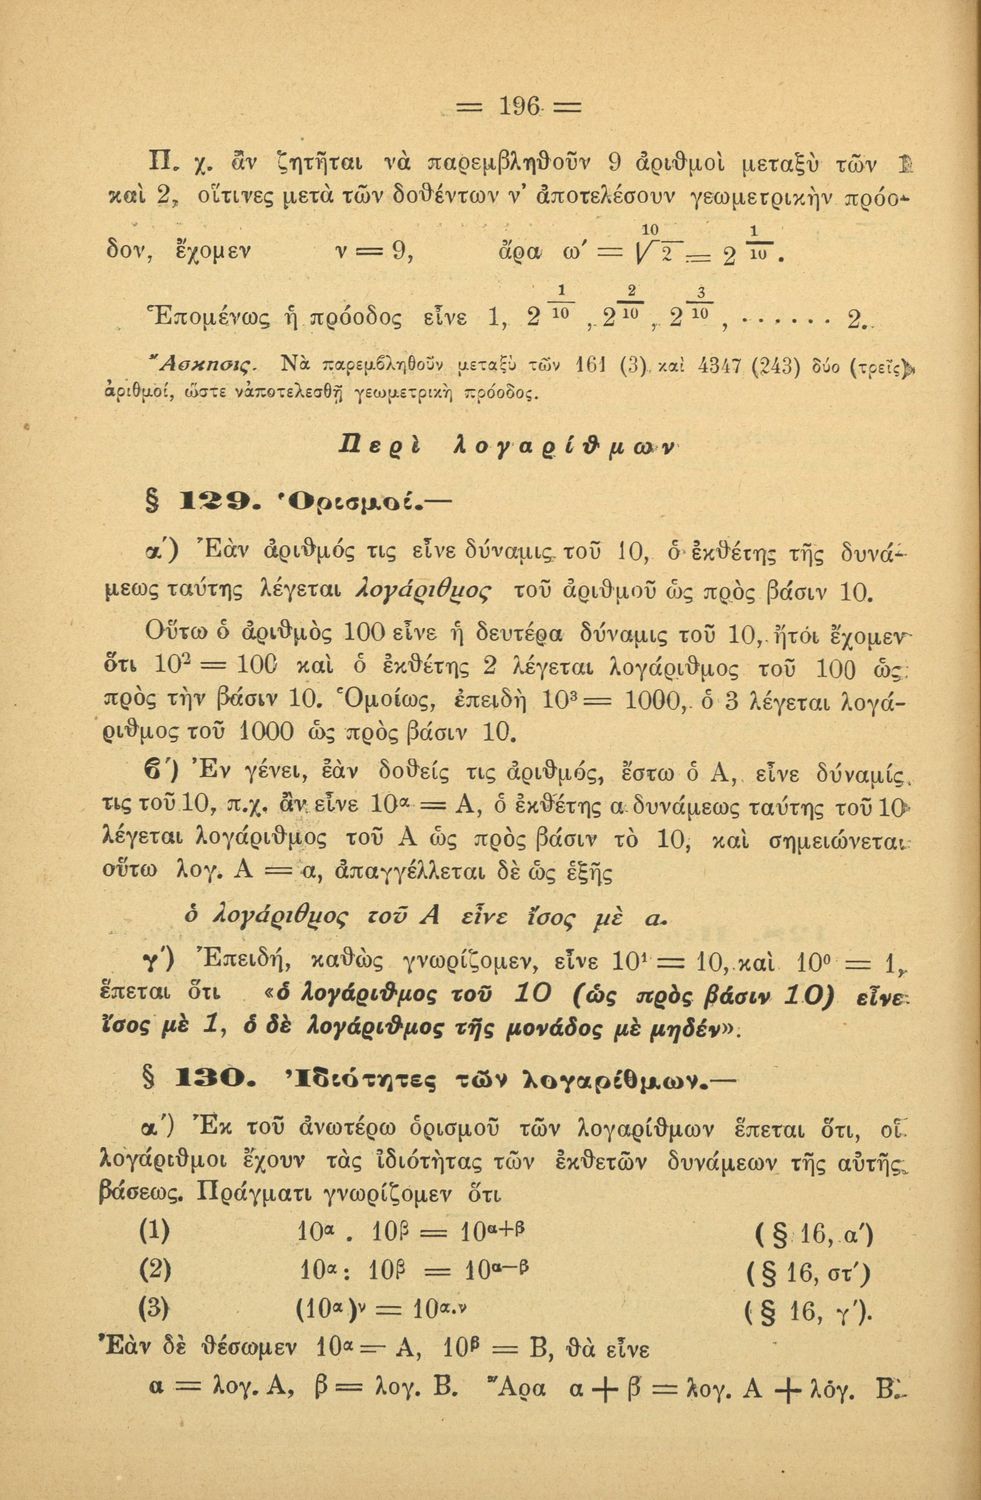 = 196 =
Π. χ. ἂν ζητῆται νὰ παρεμβληθοῦν 9 ἀριθμοὶ μεταξὺ τῶν 1
καὶ 2, οἵτινες μετὰ τῶν δοθέντων ν' ἀποτελέσουν γεωμετρικὴν πρόο-
δον, ἔχομεν ν = 9, ἄρα ω' = \sqrt[10]{2} = 2^{\frac{1}{10}}.
Ἑπομένως ἡ πρόοδος εἶνε 1, 2^{\frac{1}{10}}, 2^{\frac{2}{10}}, 2^{\frac{3}{10}}, ...... 2.
Ἄσκησις. Νὰ παρεμβληθοῦν μεταξὺ τῶν 161 (3) καὶ 4347 (243) δύο (τρεῖς)
ἀριθμοί, ὥστε νἀποτελεσθῇ γεωμετρικὴ πρόοδος.
Περὶ λογαρίθμων
§ 129. Ὁρισμοί.—
α') Ἐὰν ἀριθμός τις εἶνε δύναμις τοῦ 10, ὁ ἐκθέτης τῆς δυνά-
μεως ταύτης λέγεται λογάριθμος τοῦ ἀριθμοῦ ὡς πρὸς βάσιν 10.
Οὕτω ὁ ἀριθμὸς 100 εἶνε ἡ δευτέρα δύναμις τοῦ 10, ἤτοι ἔχομεν
ὅτι 10² = 100 καὶ ὁ ἐκθέτης 2 λέγεται λογάριθμος τοῦ 100 ὡς
πρὸς τὴν βάσιν 10. Ὁμοίως, ἐπειδὴ 10³ = 1000, ὁ 3 λέγεται λογά-
ριθμος τοῦ 1000 ὡς πρὸς βάσιν 10.
ϐ') Ἐν γένει, ἐὰν δοθείς τις ἀριθμός, ἔστω ὁ Α, εἶνε δύναμίς
τις τοῦ 10, π.χ. ἂν εἶνε 10^α = Α, ὁ ἐκθέτης α δυνάμεως ταύτης τοῦ 10
λέγεται λογάριθμος τοῦ Α ὡς πρὸς βάσιν τὸ 10, καὶ σημειώνεται
οὕτω λογ. Α = α, ἀπαγγέλλεται δὲ ὡς ἑξῆς
ὁ λογάριθμος τοῦ Α εἶνε ἴσος μὲ α.
γ') Ἐπειδή, καθὼς γνωρίζομεν, εἶνε 10¹ = 10, καὶ 10⁰ = 1,
ἕπεται ὅτι «ὁ λογάριθμος τοῦ 10 (ὡς πρὸς βάσιν 10) εἶνε
ἴσος μὲ 1, ὁ δὲ λογάριθμος τῆς μονάδος μὲ μηδέν».
§ 130. Ἰδιότητες τῶν λογαρίθμων.—
α') Ἐκ τοῦ ἀνωτέρω ὁρισμοῦ τῶν λογαρίθμων ἕπεται ὅτι, οἱ
λογάριθμοι ἔχουν τὰς ἰδιότητας τῶν ἐκθετῶν δυνάμεων τῆς αὐτῆς
βάσεως. Πράγματι γνωρίζομεν ὅτι
(1) 10^α . 10^β = 10^{α+β} (§ 16, α')
(2) 10^α : 10^β = 10^{α—β} (§ 16, στ')
(3) (10^α)^ν = 10^{α.ν} (§ 16, γ').
Ἐὰν δὲ θέσωμεν 10^α = Α, 10^β = Β, θὰ εἶνε
α = λογ. Α, β = λογ. Β. Ἄρα α + β = λογ. Α + λόγ. Β.